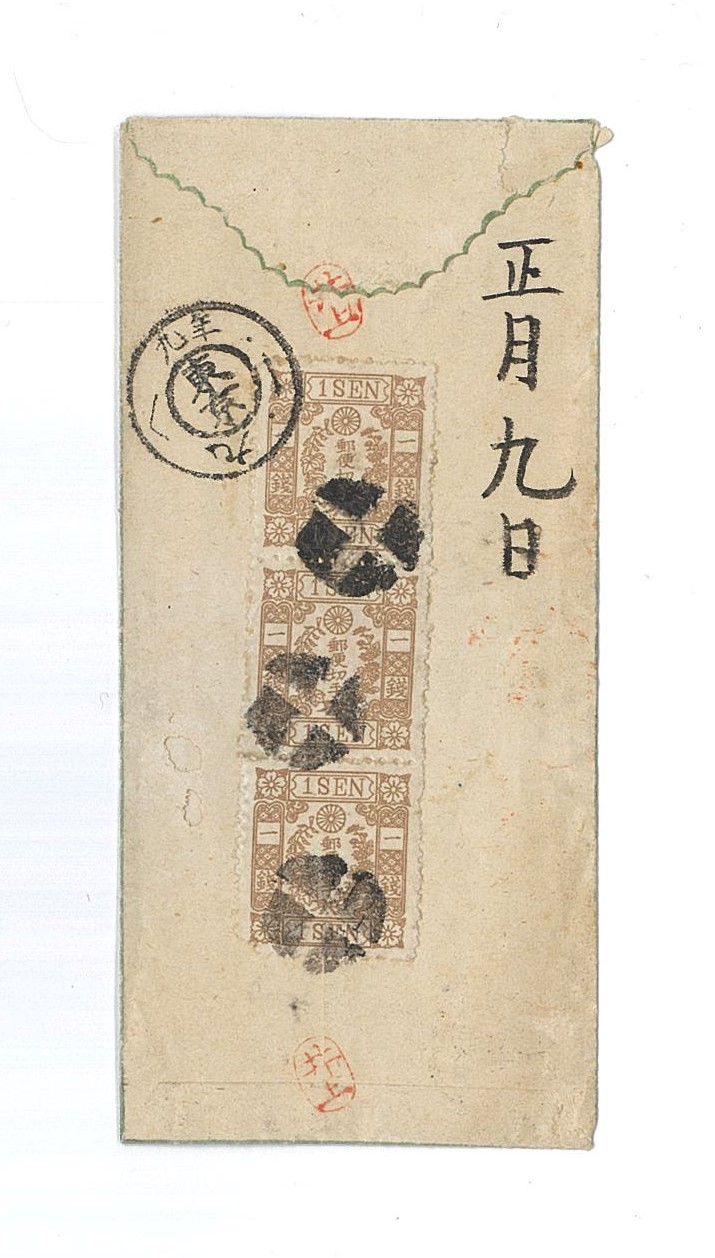 正月九日
九年
東京
一
九
1 SEN
郵便切
一
錢
一
錢
SEN
1 S
郵便切手
一
錢
一
錢
1 SEN
1 SEN
郵
一
錢
一
錢
1 SEN